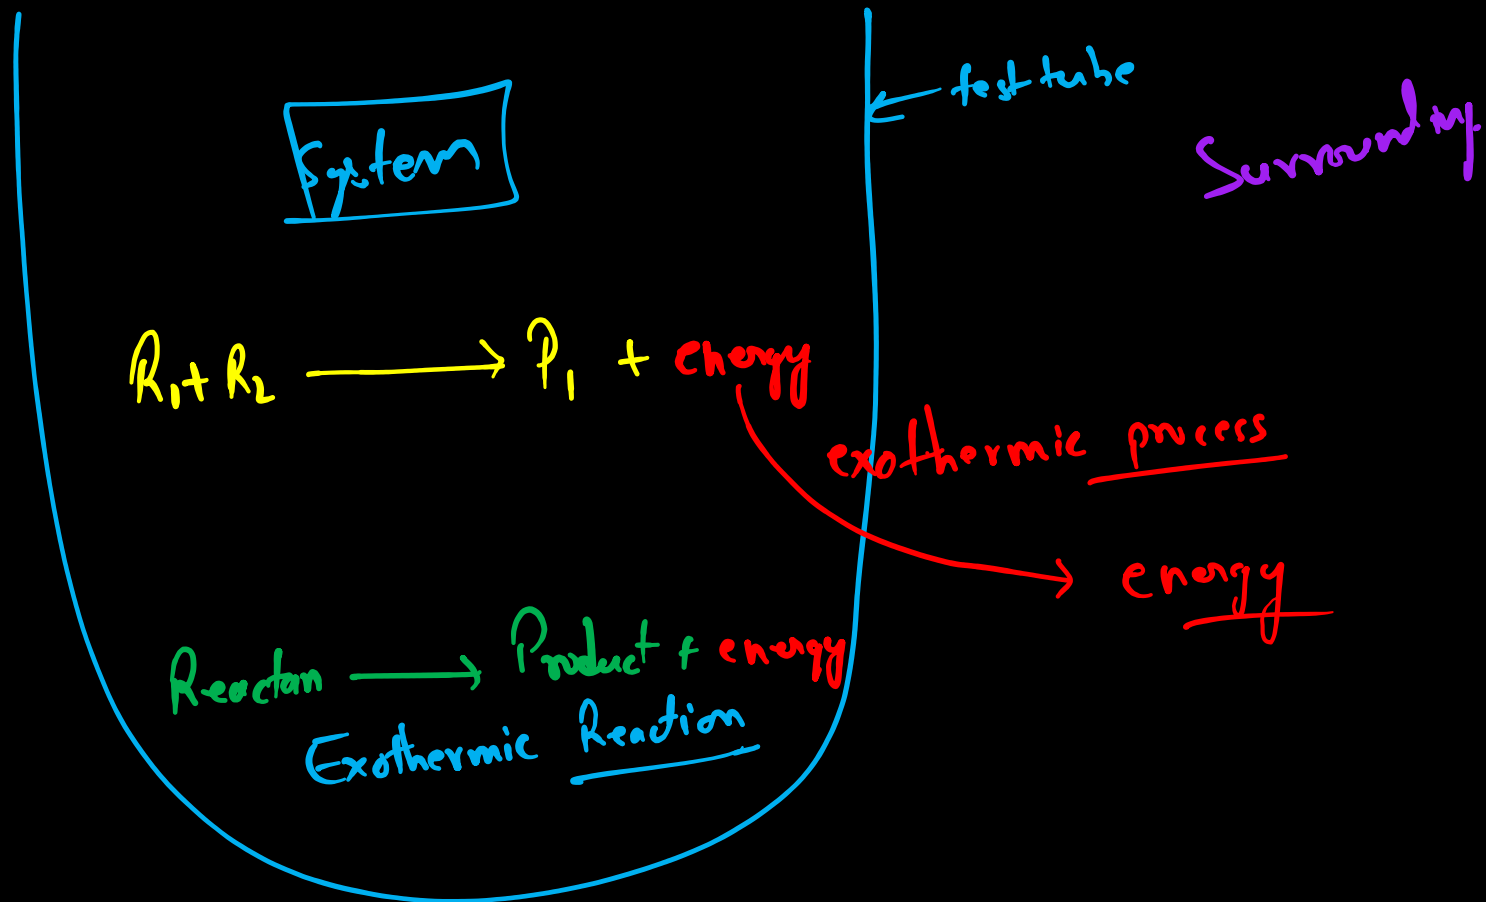 test tube
Surrounding
System
R₁ + R₂ → P₁ + energy
exothermic process
energy
Reactan → Product + energy
Exothermic Reaction